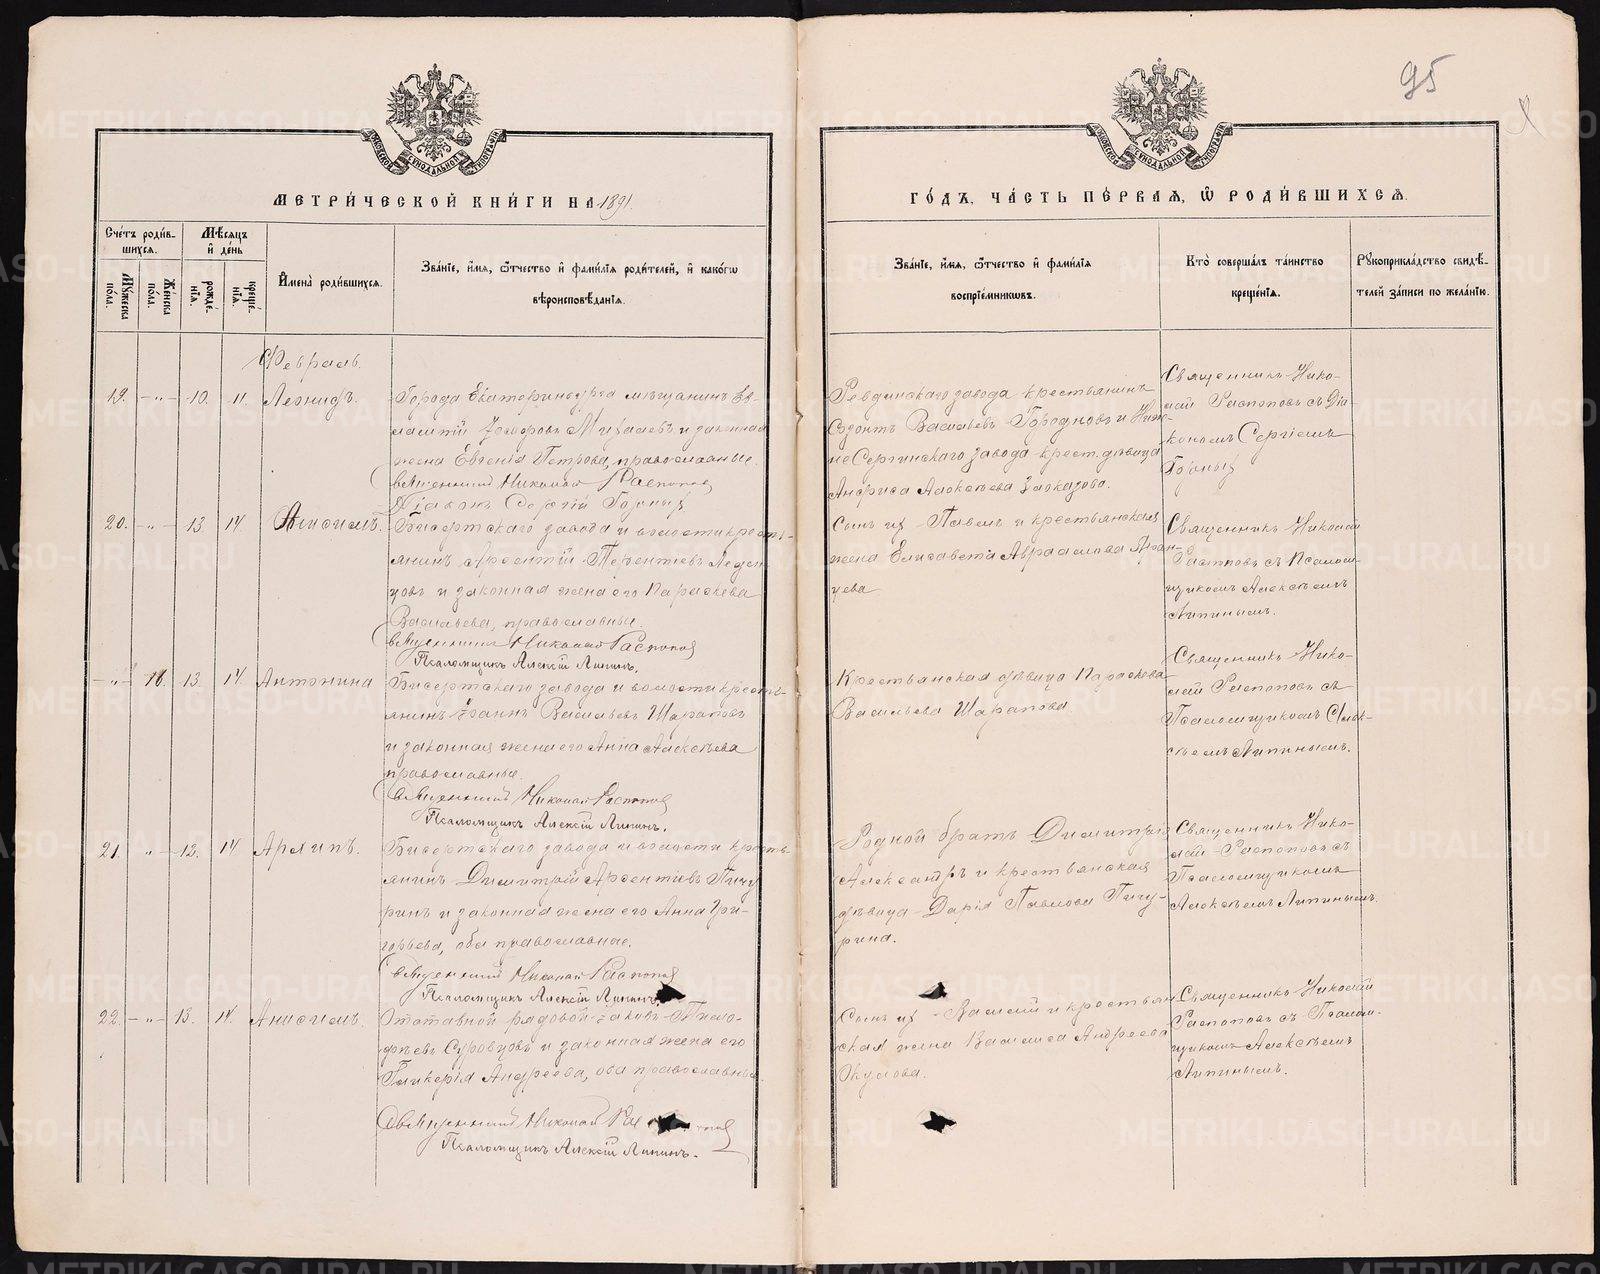 95
МЕТРИ́ЧЕСКОЙ КНИ́ГИ НА 1891.
ГО́ДЪ, ЧА́СТЬ ПЕ́РВАЯ, Ѡ РОДИ́ВШИХСЯ.
Сче́тъ роди́в-
шихся.
Мѣсяцъ
и де́нь
Му́жеска по́ла.
Же́нска по́ла.
рожде́нїя.
креще́нїя.
Имена̀ роди́вшихся.
Зва́нїе, и́мя, ѻ́тчество и фами́лїя роди́телей, и како́гѡ
вѣроисповѣ́данїя.
Зва́нїе, и́мя, ѻ́тчество и фами́лїя
воспрїе́мникѡвъ.
Кто̀ соверша́лъ та́инство
креще́нїя.
Рꙋкоприкла́дство свидѣ́-
телей за́писи по жела́нїю.
Февраль.
19. - „ - 10. 11. Леонидъ.
Города Екатеринбурга мѣщанинъ Ев-
жена Евгенія Петрова, православные.
Священникъ Николай Распоповъ
Діаконъ Сергій Горныхъ
Ревдинскаго завода крестьянинъ
Васильевъ Городновъ и Ниж-
не Сергинскаго завода крест. дѣвица
Анфиса Алексѣева
Священникъ Нико-
лай Распоповъ съ Діа-
кономъ Сергіемъ
Горныхъ
20. - „ - 13 14 Анисимъ.
Бисертскаго завода и волости кресть-
янинъ Арсентій Терентіевъ Леден-
цовъ и законная жена его Параскева
Васильева, православные.
Священникъ Николай Распоповъ
Псаломщикъ Алексій Липинъ.
Сынъ ихъ Павелъ и крестьянская
жена Елисавета Авраамова
цева
Священникъ Николай
Распоповъ съ Псалом-
щикомъ Алексѣемъ
Липинымъ.
- „ - 18. 13. 14. Антонина
Бисертскаго завода и волости кресть-
янинъ Іоаннъ Васильевъ Шараповъ
и законная жена его Анна Алексѣева
православные.
Священникъ Николай Распоповъ
Псаломщикъ Алексій Липинъ.
Крестьянская дѣвица Параскева
Васильева Шарапова
Священникъ Нико-
лай Распоповъ съ
Псаломщикомъ Алек-
сѣемъ Липинымъ.
21. „ - 12. 14. Архипъ.
Бисертскаго завода и волости кресть-
янинъ Димитрій Арсентіевъ Пичу
ринъ и законная жена его Анна Гри-
горьева, оба православные.
Священникъ Николай Распоповъ
Псаломщикъ Алексій Липинъ.
Родной братъ Димитрія
Александръ и крестьянская
дѣвица Дарія Павлова Пичу-
рина.
Священникъ Нико-
лай Распоповъ съ
Псаломщикомъ
Алексѣемъ Липинымъ.
22. - „ - 13. 14. Анисимъ.
Отставной рядовой Іаковъ Тимо-
фѣевъ Суровцовъ и законная жена его
Гликерія Андреева, оба православные.
Священникъ Николай Распоповъ
Псаломщикъ Алексій Липинъ.
Сынъ ихъ Василій и крестьян
ская жена Васса Андреева
Окулова.
Священникъ Николай
Распоповъ съ Псалом-
щикомъ Алексѣемъ
Липинымъ.
METRIKI.GASO-URAL.RU